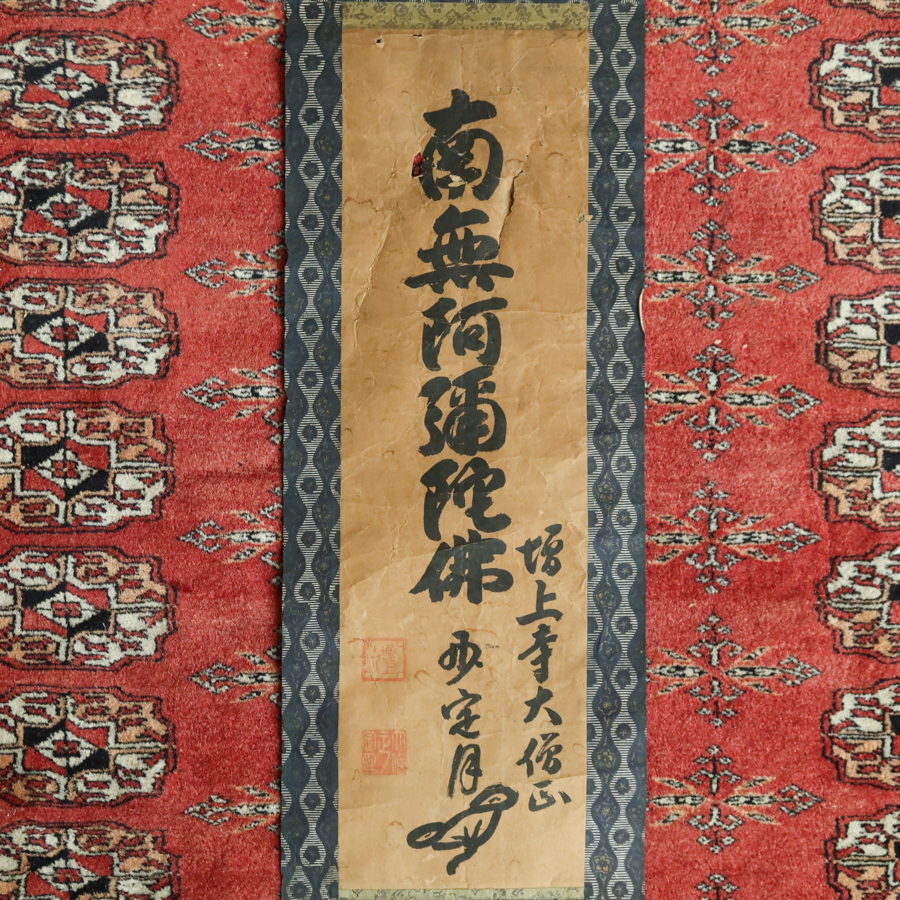 南無阿彌陀佛
增上寺大僧正
定月